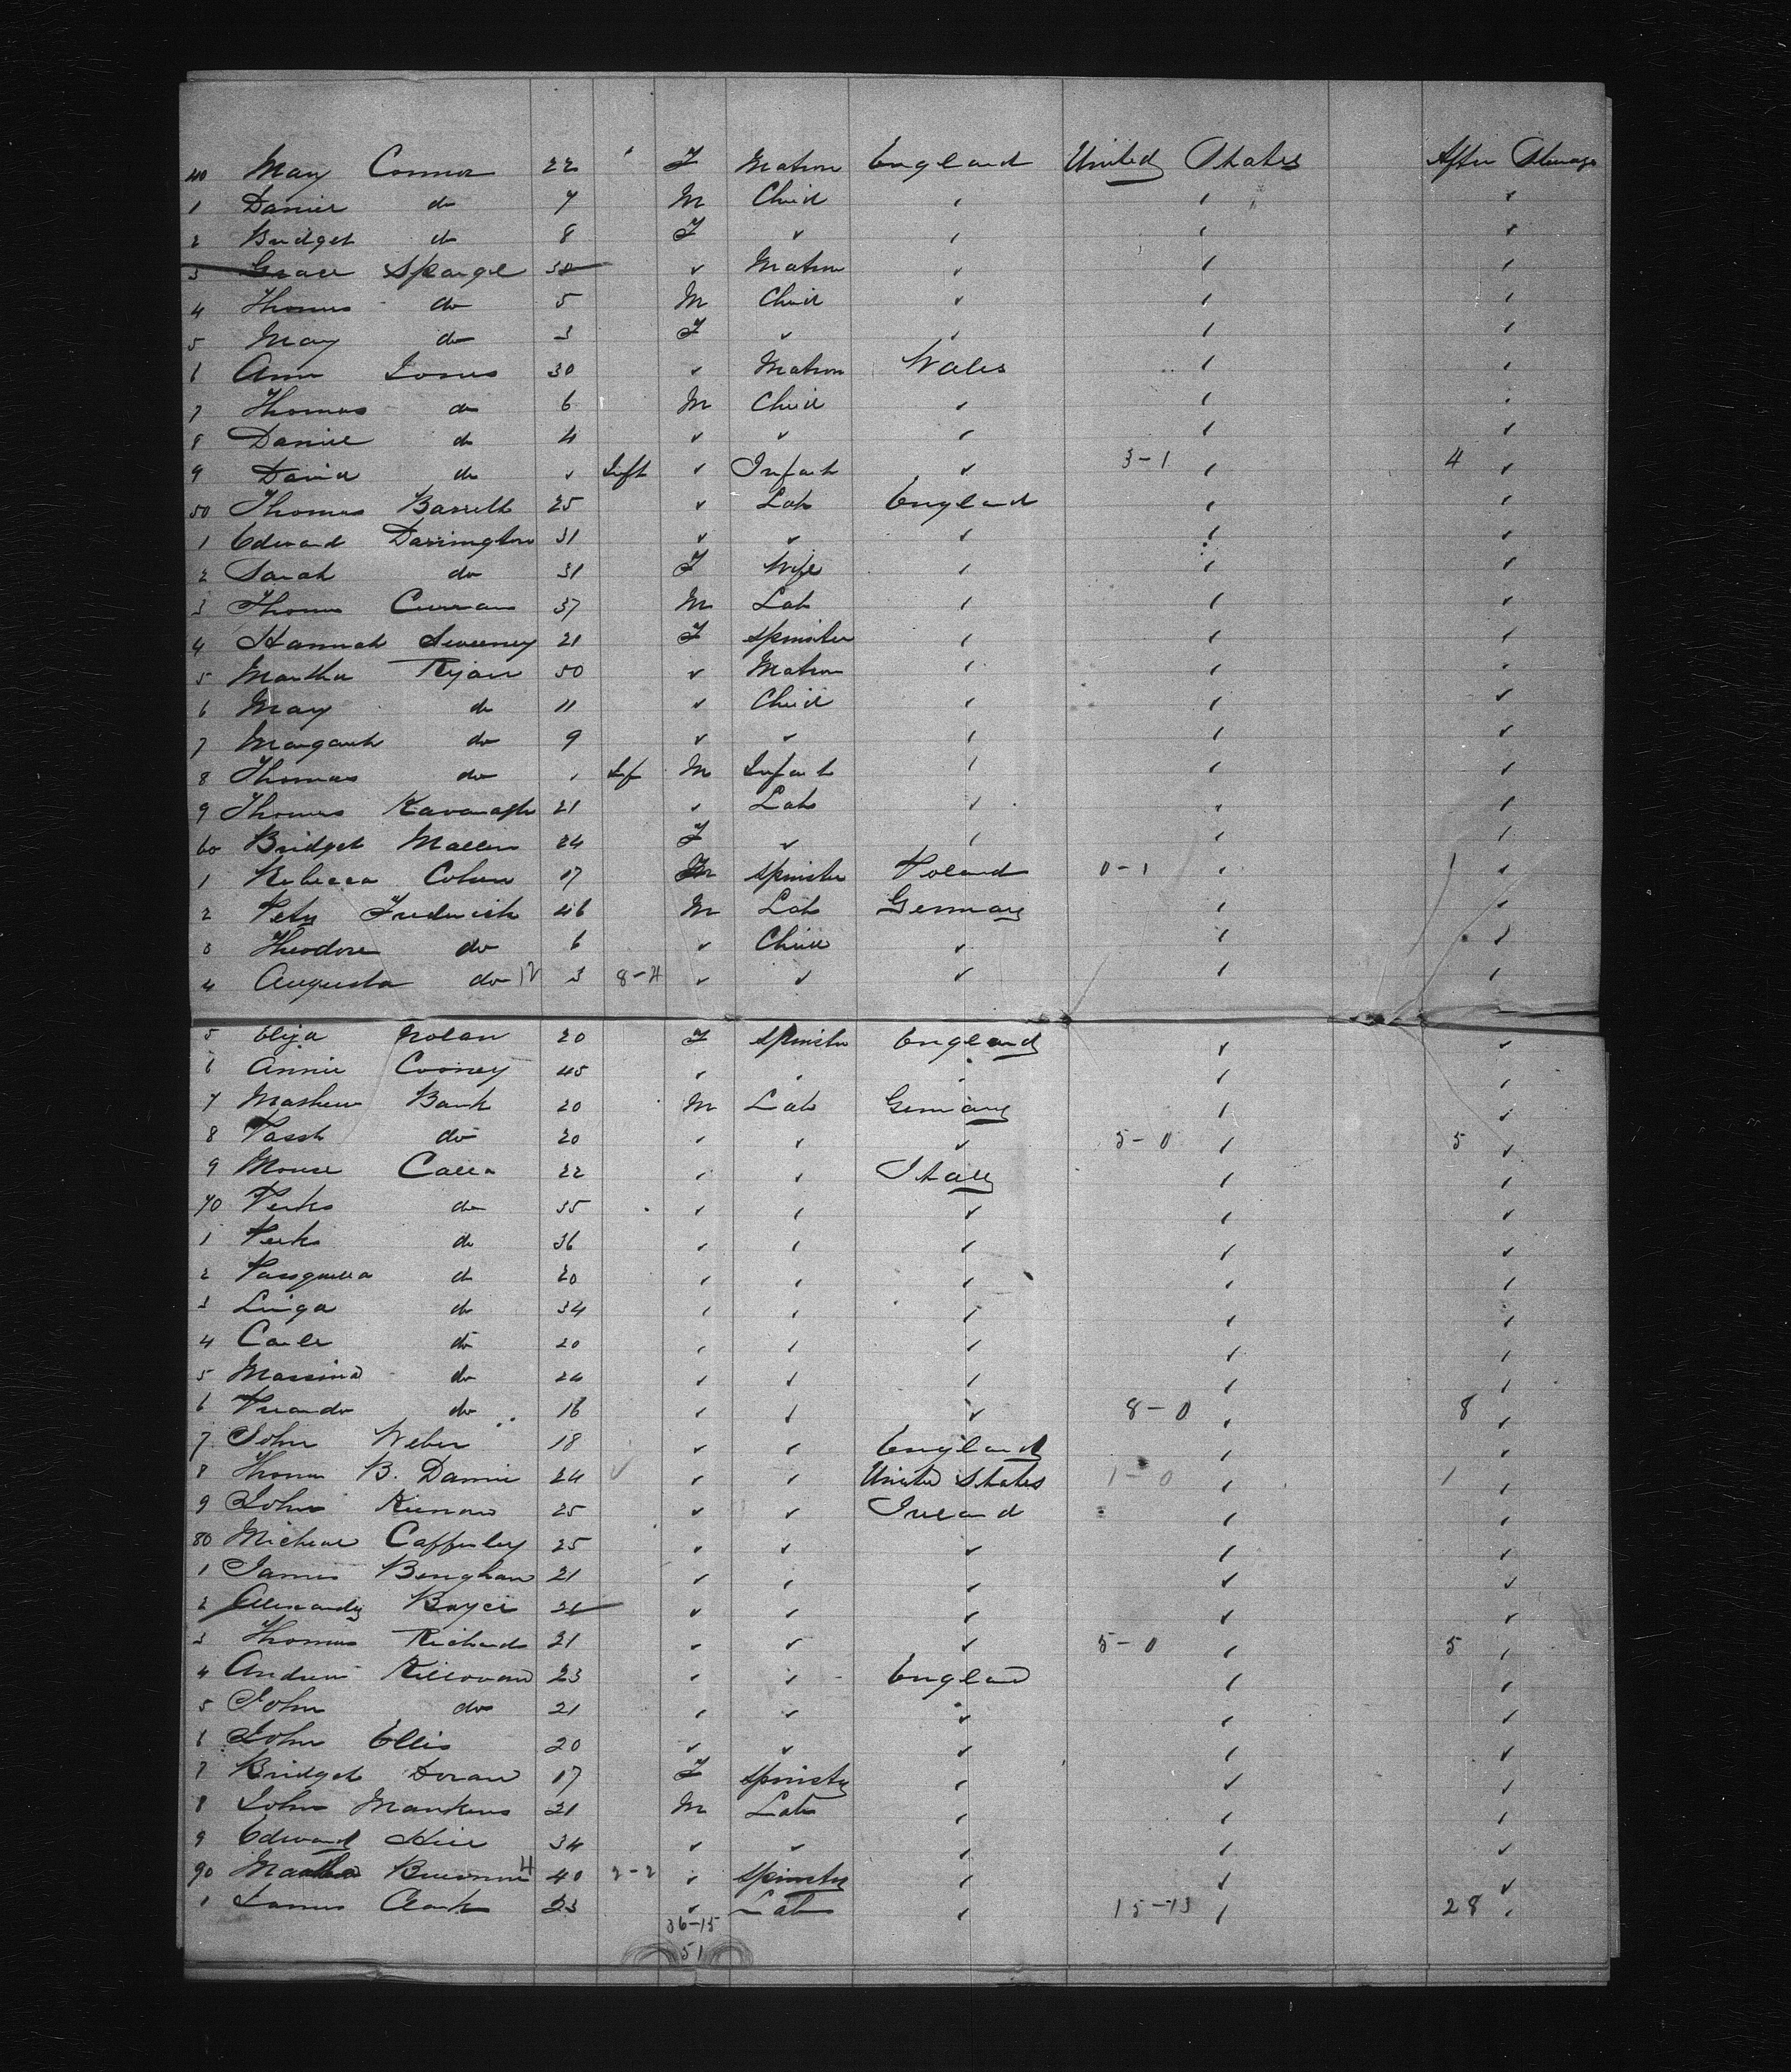 40 Mary Connor 22 F Matron England United States After Steerage
1 Daniel do 7 M Child
2 Bridget do 8 F
3 Grace Spargel 30 Matron
4 Thomas do 5 M Child
5 Mary do 3 F
6 Ann Jones 30 Matron Wales
7 Thomas do 6 M Child
8 Daniel do 4
9 David do Inft Infant 3-1 4
50 Thomas Barrett 25 Lab England
1 Edward Darrington 31
2 Sarah do 31 F Wife
3 Thomas Curran 37 M Lab
4 Hannah Sweeney 21 F Spinster
5 Martha Ryan 50 Matron
6 Mary do 11 Child
7 Margaret do 9
8 Thomas do Inf M Infant
9 Thomas Kavanagh 21 Lab
60 Bridget Mallen 24 F
1 Rebecca Cohen 17 Spinster Poland 0-1 1
2 Peter Frederick 46 M Lab Germany
3 Theodore do 6 Child
4 Augusta do 12 3 8-4
5 Eliza Nolan 20 F Spinster England
6 Annie Cooney 45
7 Mathew Bank 20 M Lab Germany
8 do 20 5-0 5
9 Calla 22 Italy
70 do 35
1 do 36
2 Pasquella do 20
3 Linga do 34
4 Carle do 20
5 Massino do 24
6 do 16 8-0 8
7 John Weber 18 England
8 Thomas B. 24 United States 1-0 1
9 John 25 Ireland
80 Micheal Cafferley 25
1 James Benghan 21
2 Alexander 21
3 Thomas Richards 21 5-0 5
4 Andrew 23 England
5 John do 21
6 John Ellis 20
7 Bridget Doran 17 F Spinster
8 John Mankins 21 M Lab
9 Edward Hill 34
90 Martha 4 40 2-2 Spinster
1 James Clark 23 Lab 15-13 28
36-15
51